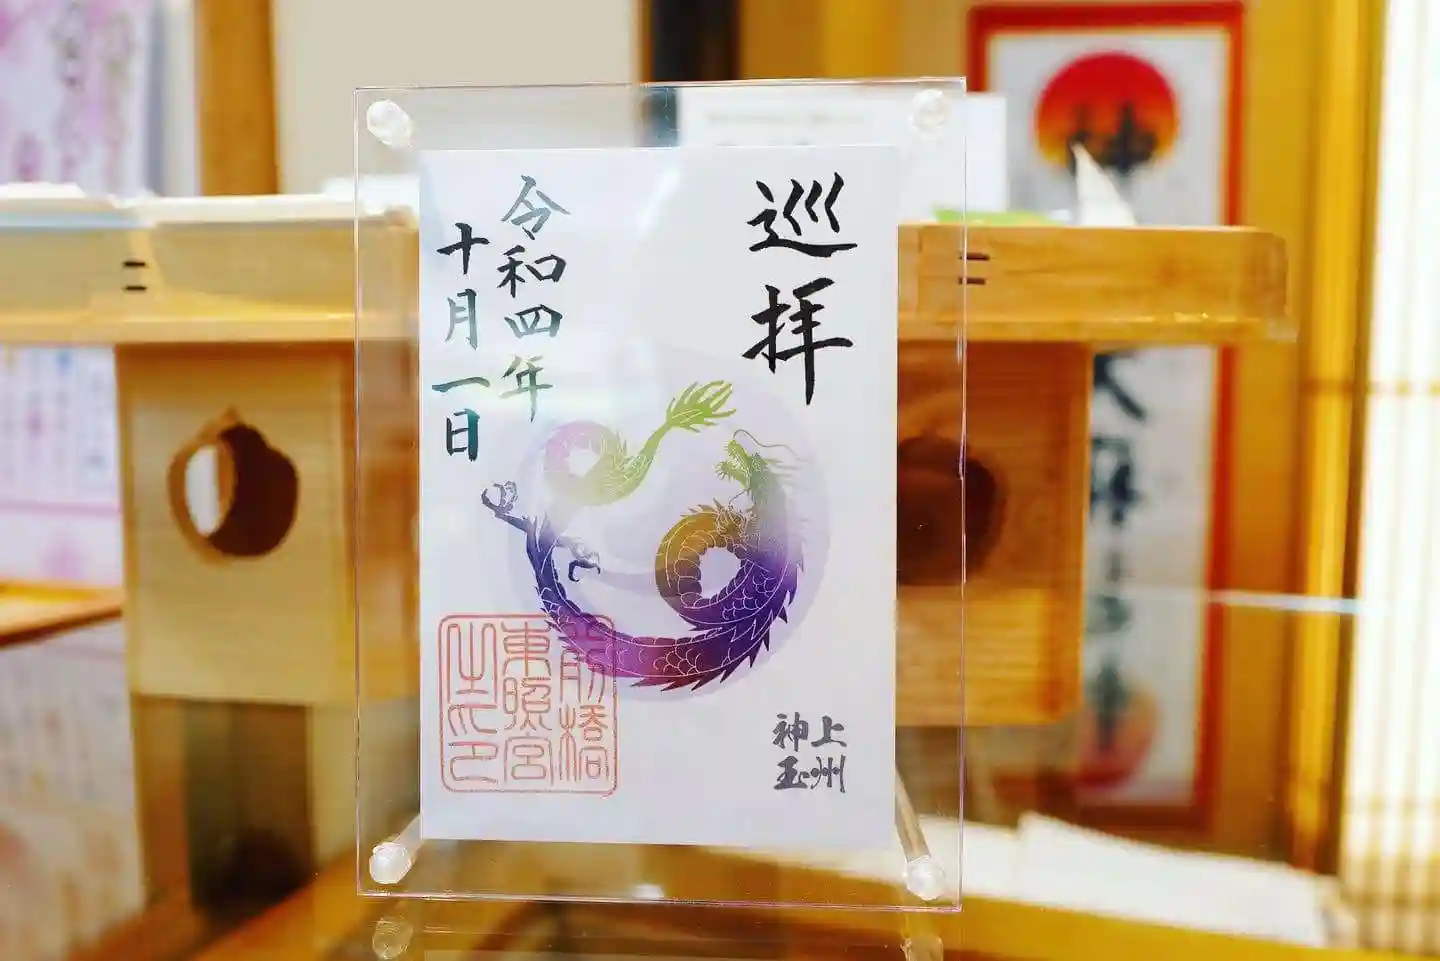 巡拝
上州
神玉
令和四年
十月一日
前橋
東照宮
之印